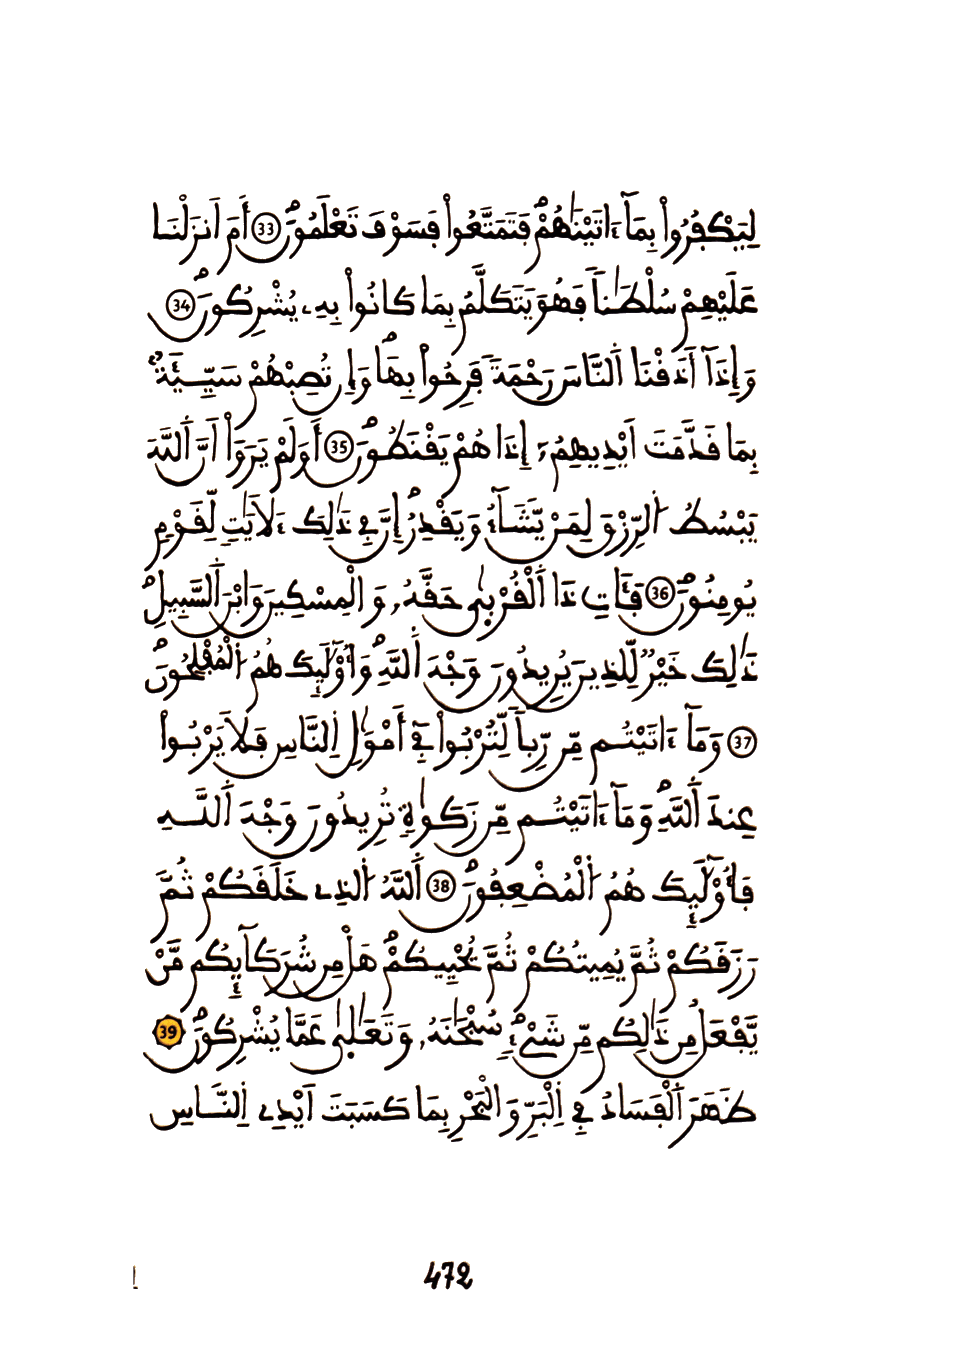 لِيَكْفُرُواْ بِمَآ ءَاتَيْنَٰهُمْۖ فَتَمَتَّعُواْ فَسَوْفَ تَعْلَمُونَۖ 33 أَمَ اَنزَلْنَا
عَلَيْهِمْ سُلْطَٰناٗ فَهُوَ يَتَكَلَّمُ بِمَا كَانُواْ بِهِۦ يُشْرِكُونَۖ 34
وَإِذَآ أَذَقْنَا اَلنَّاسَ رَحْمَةٗ فَرِحُواْ بِهَاۖ وَإِن تُصِبْهُمْ سَيِّئَةُۢ
بِمَا قَدَّمَتَ اَيْدِيهِمُۥٓ إِذَا هُمْ يَقْنَطُونَۖ 35 أَوَلَمْ يَرَوَاْ اَنَّ اَللَّهَ
يَبْسُطُ اُلرِّزْقَ لِمَنْ يَّشَآءُ وَيَقْدِرُۖ إِنَّ فِے ذَٰلِكَ ءَلَايَٰتٖ لِّقَوْمٖ
يُومِنُونَۖ 36 فَـَٔاتِ ذَا اَلْقُرْبَىٰ حَقَّهُۥ وَالْمِسْكِينَ وَابْنَ اَلسَّبِيلِۖ
ذَٰلِكَ خَيْرٞ لِّلذِينَ يُرِيدُونَ وَجْهَ اَللَّهِۖ وَأُوْلَٰٓئِكَ هُمُ اُلْمُفْلِحُونَۖ
37 وَمَآ ءَاتَيْتُم مِّن رِّباٗ لِّتُرْبُواْ فِےٓ أَمْوَٰلِ اِلنَّاسِ فَلَا يَرْبُواْ
عِندَ اَللَّهِۖ وَمَآ ءَاتَيْتُم مِّن زَكَوٰةٖ تُرِيدُونَ وَجْهَ اَللَّهِ
فَأُوْلَٰٓئِكَ هُمُ اُلْمُضْعِفُونَۖ 38 اَللَّهُ اُلذِے خَلَقَكُمْ ثُمَّ
رَزَقَكُمْ ثُمَّ يُمِيتُكُمْ ثُمَّ يُحْيِيكُمْۖ هَلْ مِن شُرَكَآئِكُم مَّنْ
يَّفْعَلُ مِن ذَٰلِكُم مِّن شَےْءٖۖ سُبْحَٰنَهُۥ وَتَعَٰلَىٰ عَمَّا يُشْرِكُونَۖ 39
ظَهَرَ اَلْفَسَادُ فِے اِلْبَرِّ وَالْبَحْرِ بِمَا كَسَبَتَ اَيْدِے اِلنَّاسِ
472
!